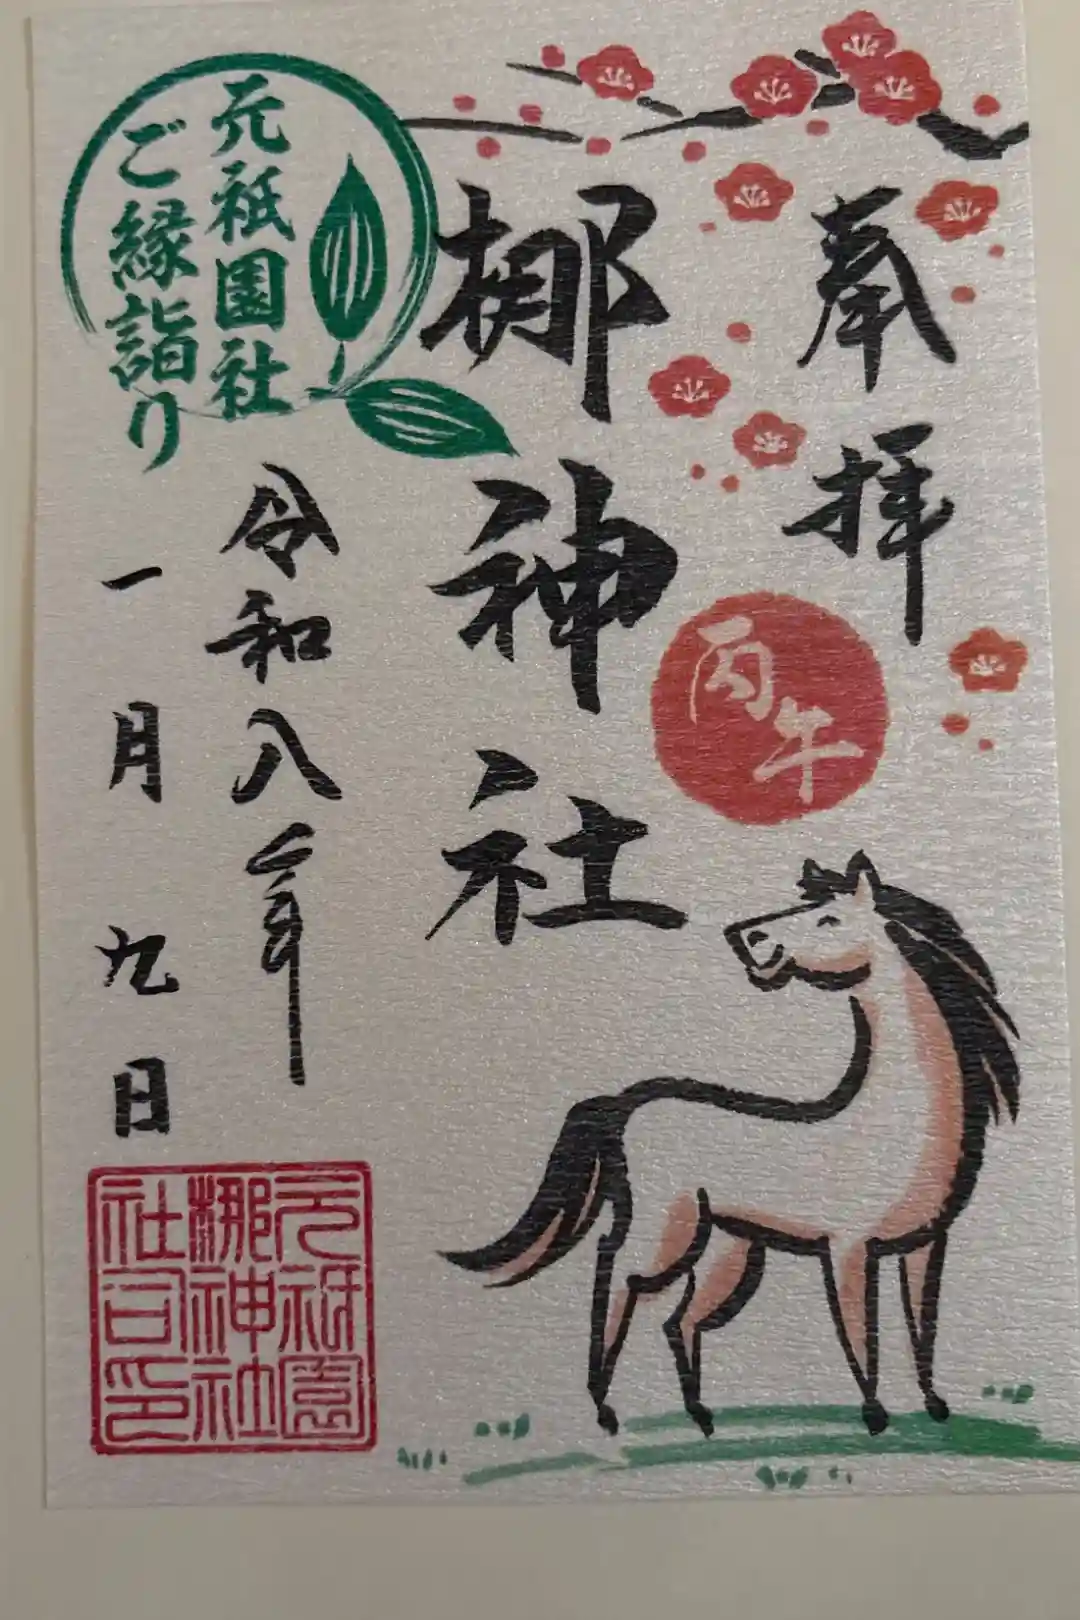 奉拝
丙午
梛神社
元祇園社
ご縁詣り
令和八年
一月九日
元祇園
梛神社
社司印